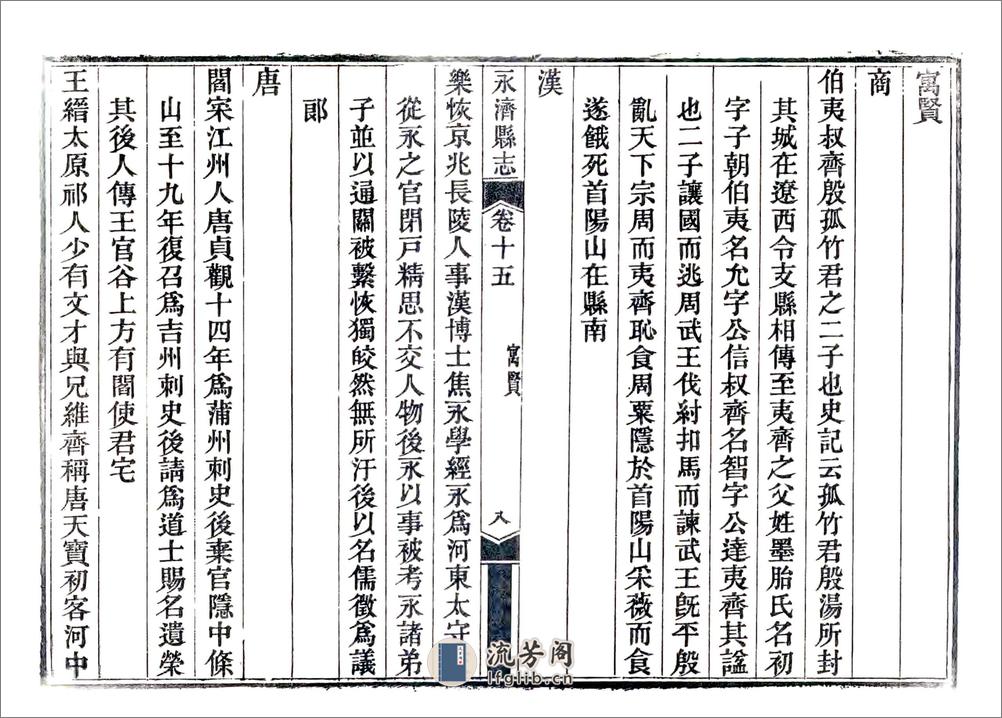 寓賢
商
伯夷叔齊殷孤竹君之二子也史記云孤竹君殷湯所封
其城在遼西令支縣相傳至夷齊之父姓墨胎氏名初
字子朝伯夷名允字公信叔齊名智字公達夷齊其謚
也二子讓國而逃周武王伐紂扣馬而諫武王旣平殷
亂天下宗周而夷齊恥食周粟隱於首陽山采薇而食
遂餓死首陽山在縣南
漢
永濟縣志
卷十五
寓賢
八
樂恢京兆長陵人事漢博士焦永學經永爲河東太守
從永之官閉戸精思不交人物後永以事被考永諸弟
子並以通關被繫恢獨皎然無所汙後以名儒徵爲議
郎
唐
閻寀江州人唐貞觀十四年爲蒲州刺史後棄官隱中條
山至十九年復召爲吉州刺史後請爲道士賜名遺榮
其後人傳王官谷上方有閻使君宅
王縉太原祁人少有文才與兄維齊稱唐天寶初客河中
流芳阁
lfglib.cn